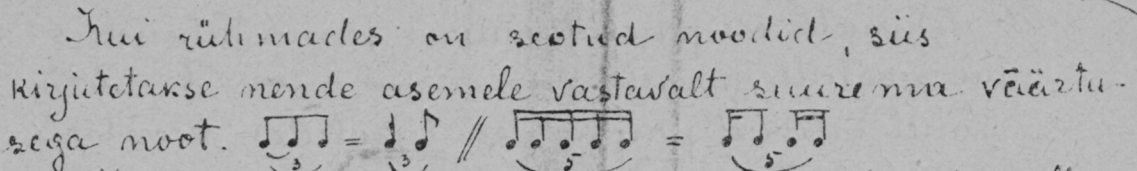 Kui rühmades on seotud noodid, siis
kirjutetakse nende asemele vastavalt suurema väärtu-
sega noot. ♫♪ = ♩ ♪ // ♫♫♪ = ♫ ♫
3 3 5 5